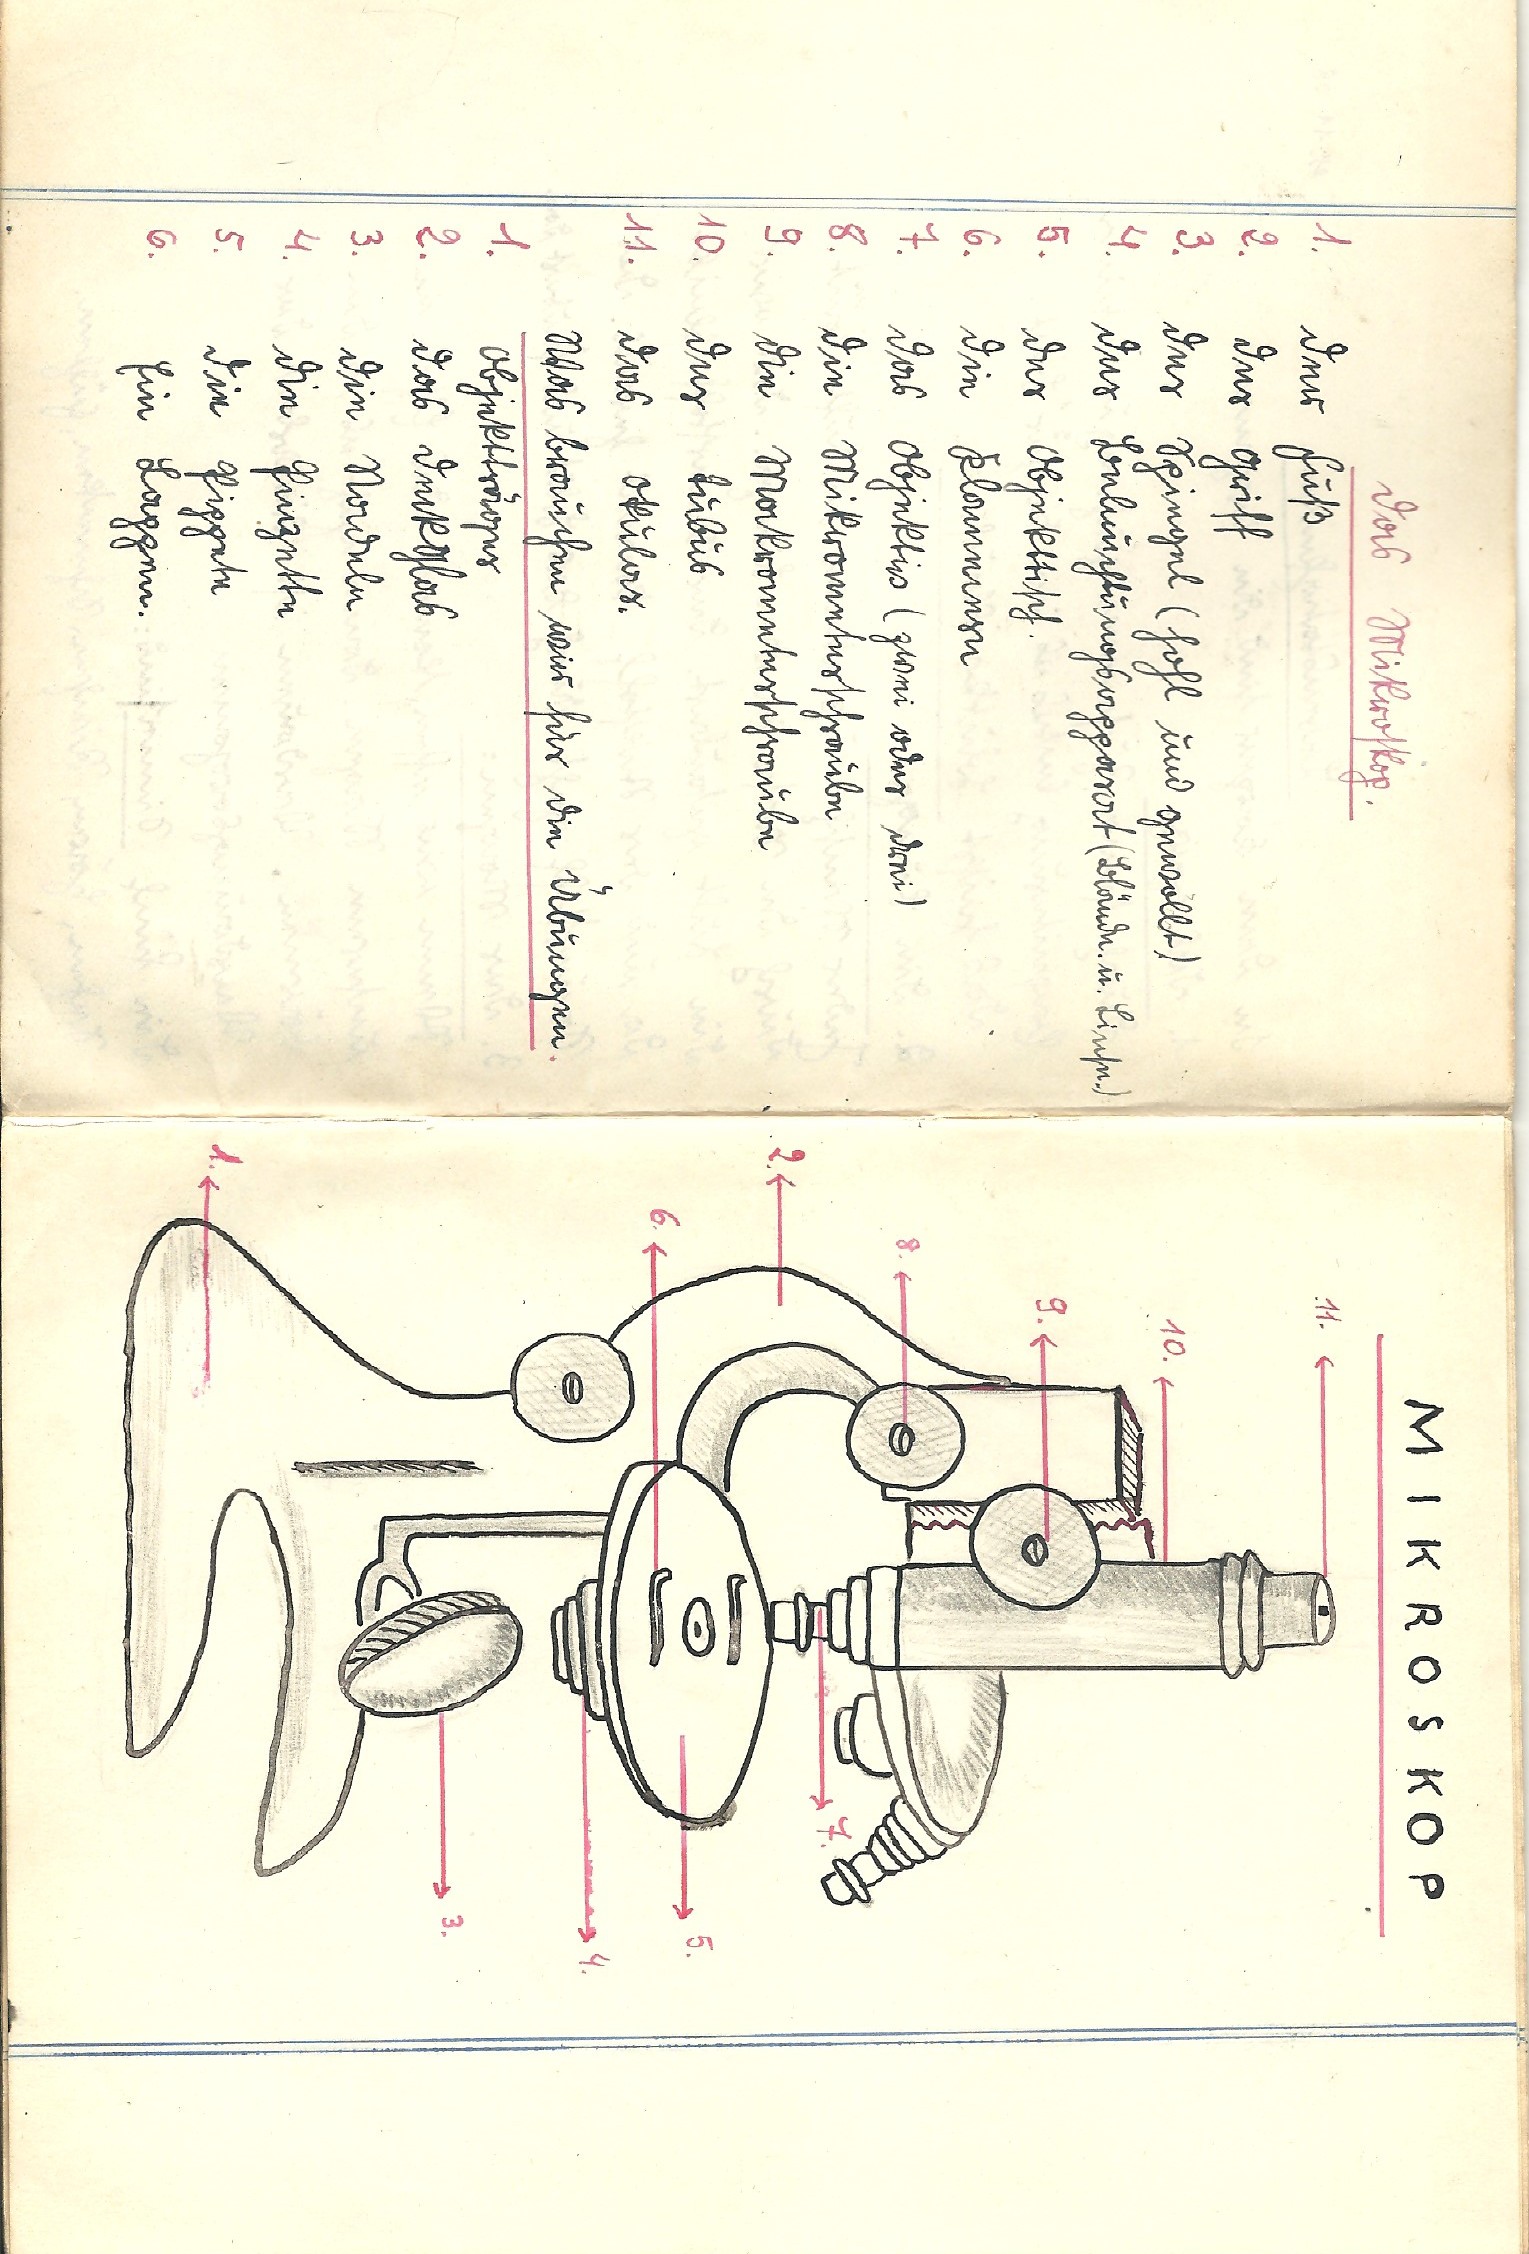 Das Mikroskop.
1. Der Fuß
2. Der Griff
3. Der Spiegel (hohl und gewölbt)
4. Der Beleuchtungsapparat (Blände. u. Linse.)
5. Der Objekttisch.
6. Die Klammern
7. Das Objektiv (zwei oder drei)
8. Die Mikrometerschraube
9. Die Makrometerschraube
10. Der Tubus
11. Das Okular.
Was brauchen wir für die Übungen.
1. Objektträger
2. Das Deckglas
3. Die Nadeln
4. Die Pinzette
5. Die Pipette
6. Ein Lappen.
MIKROSKOP
11.
10.
9.
8.
2.
6.
1.
7.
5.
4.
3.